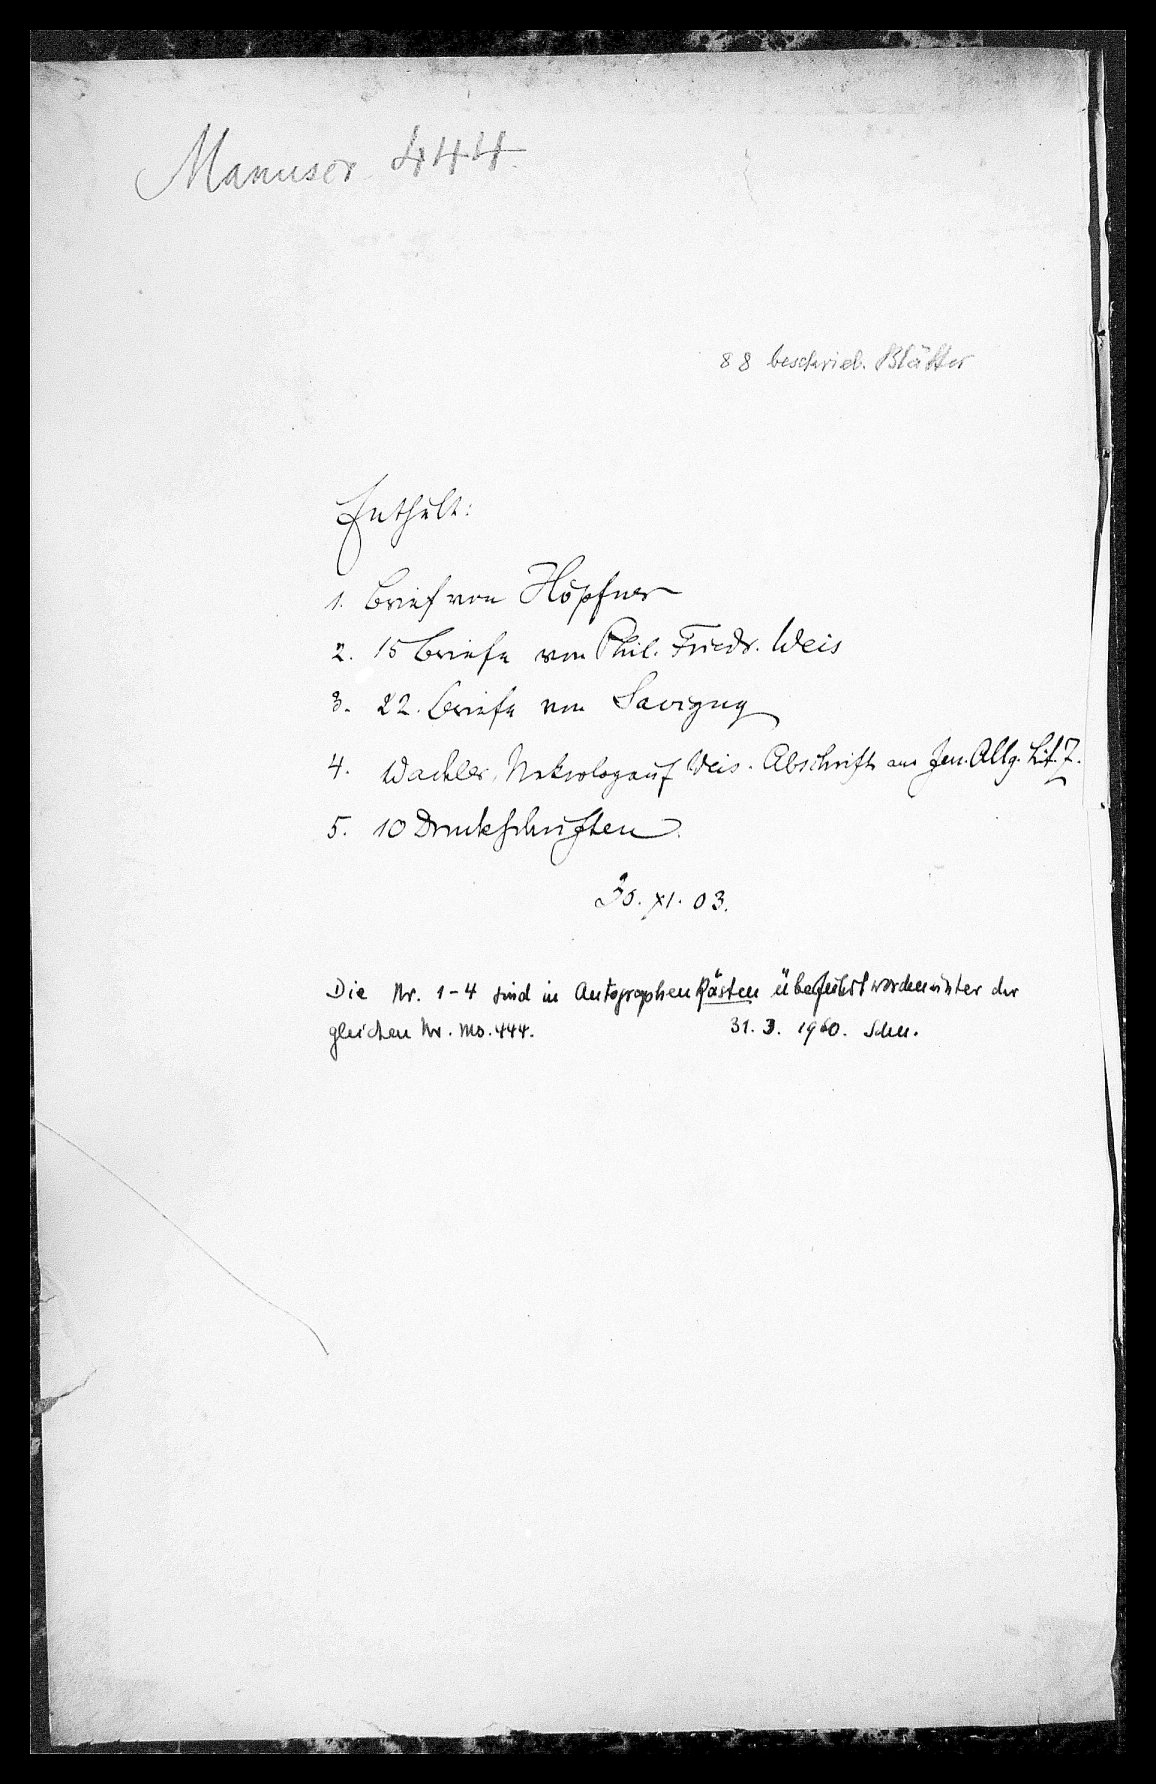 Manuscr 444.
88 beschrieb. Blätter
Enthält:
1. Brief von Höpfner
2. 15 Briefe von Phil. Friedr. Weis
3. 22. Briefe von Savigny
4. Wachler, Nekrolog auf Weis. Abschrift aus Jen. Allg. Lit. Z.
5. 10 Druckschriften.
XI. 03.
Die Nr. 1-4 sind in Autographen Kästen überführt worden unter der
gleichen Nr. Ms. 444. 31. 3. 1960. Schn.